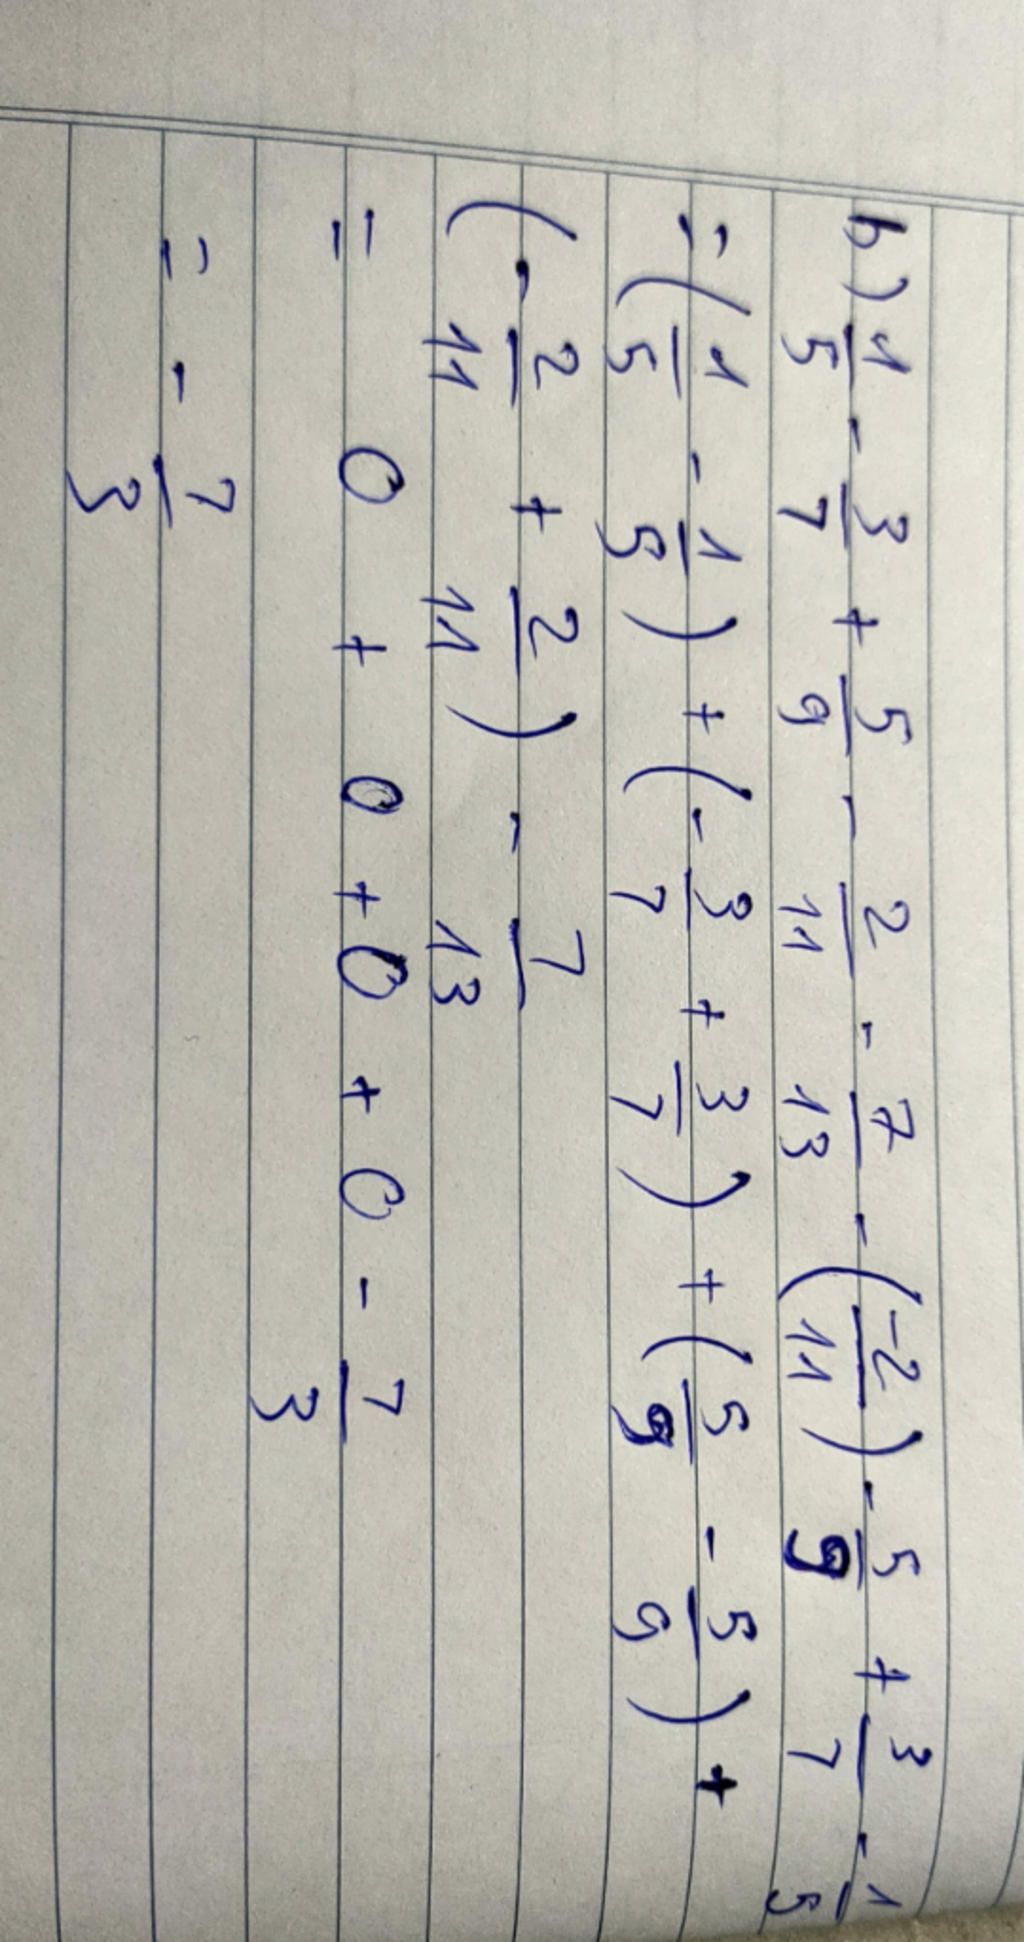 b) 1/5 - 3/7 + 5/9 - 2/11 - 7/13 - (-2/11) - 5/9 + 3/7 - 1/5
= (1/5 - 1/5) + (-3/7 + 3/7) + (5/9 - 5/9) +
(-2/11 + 2/11) - 7/13
= 0 + 0 + 0 + 0 - 7/3
= - 7/3